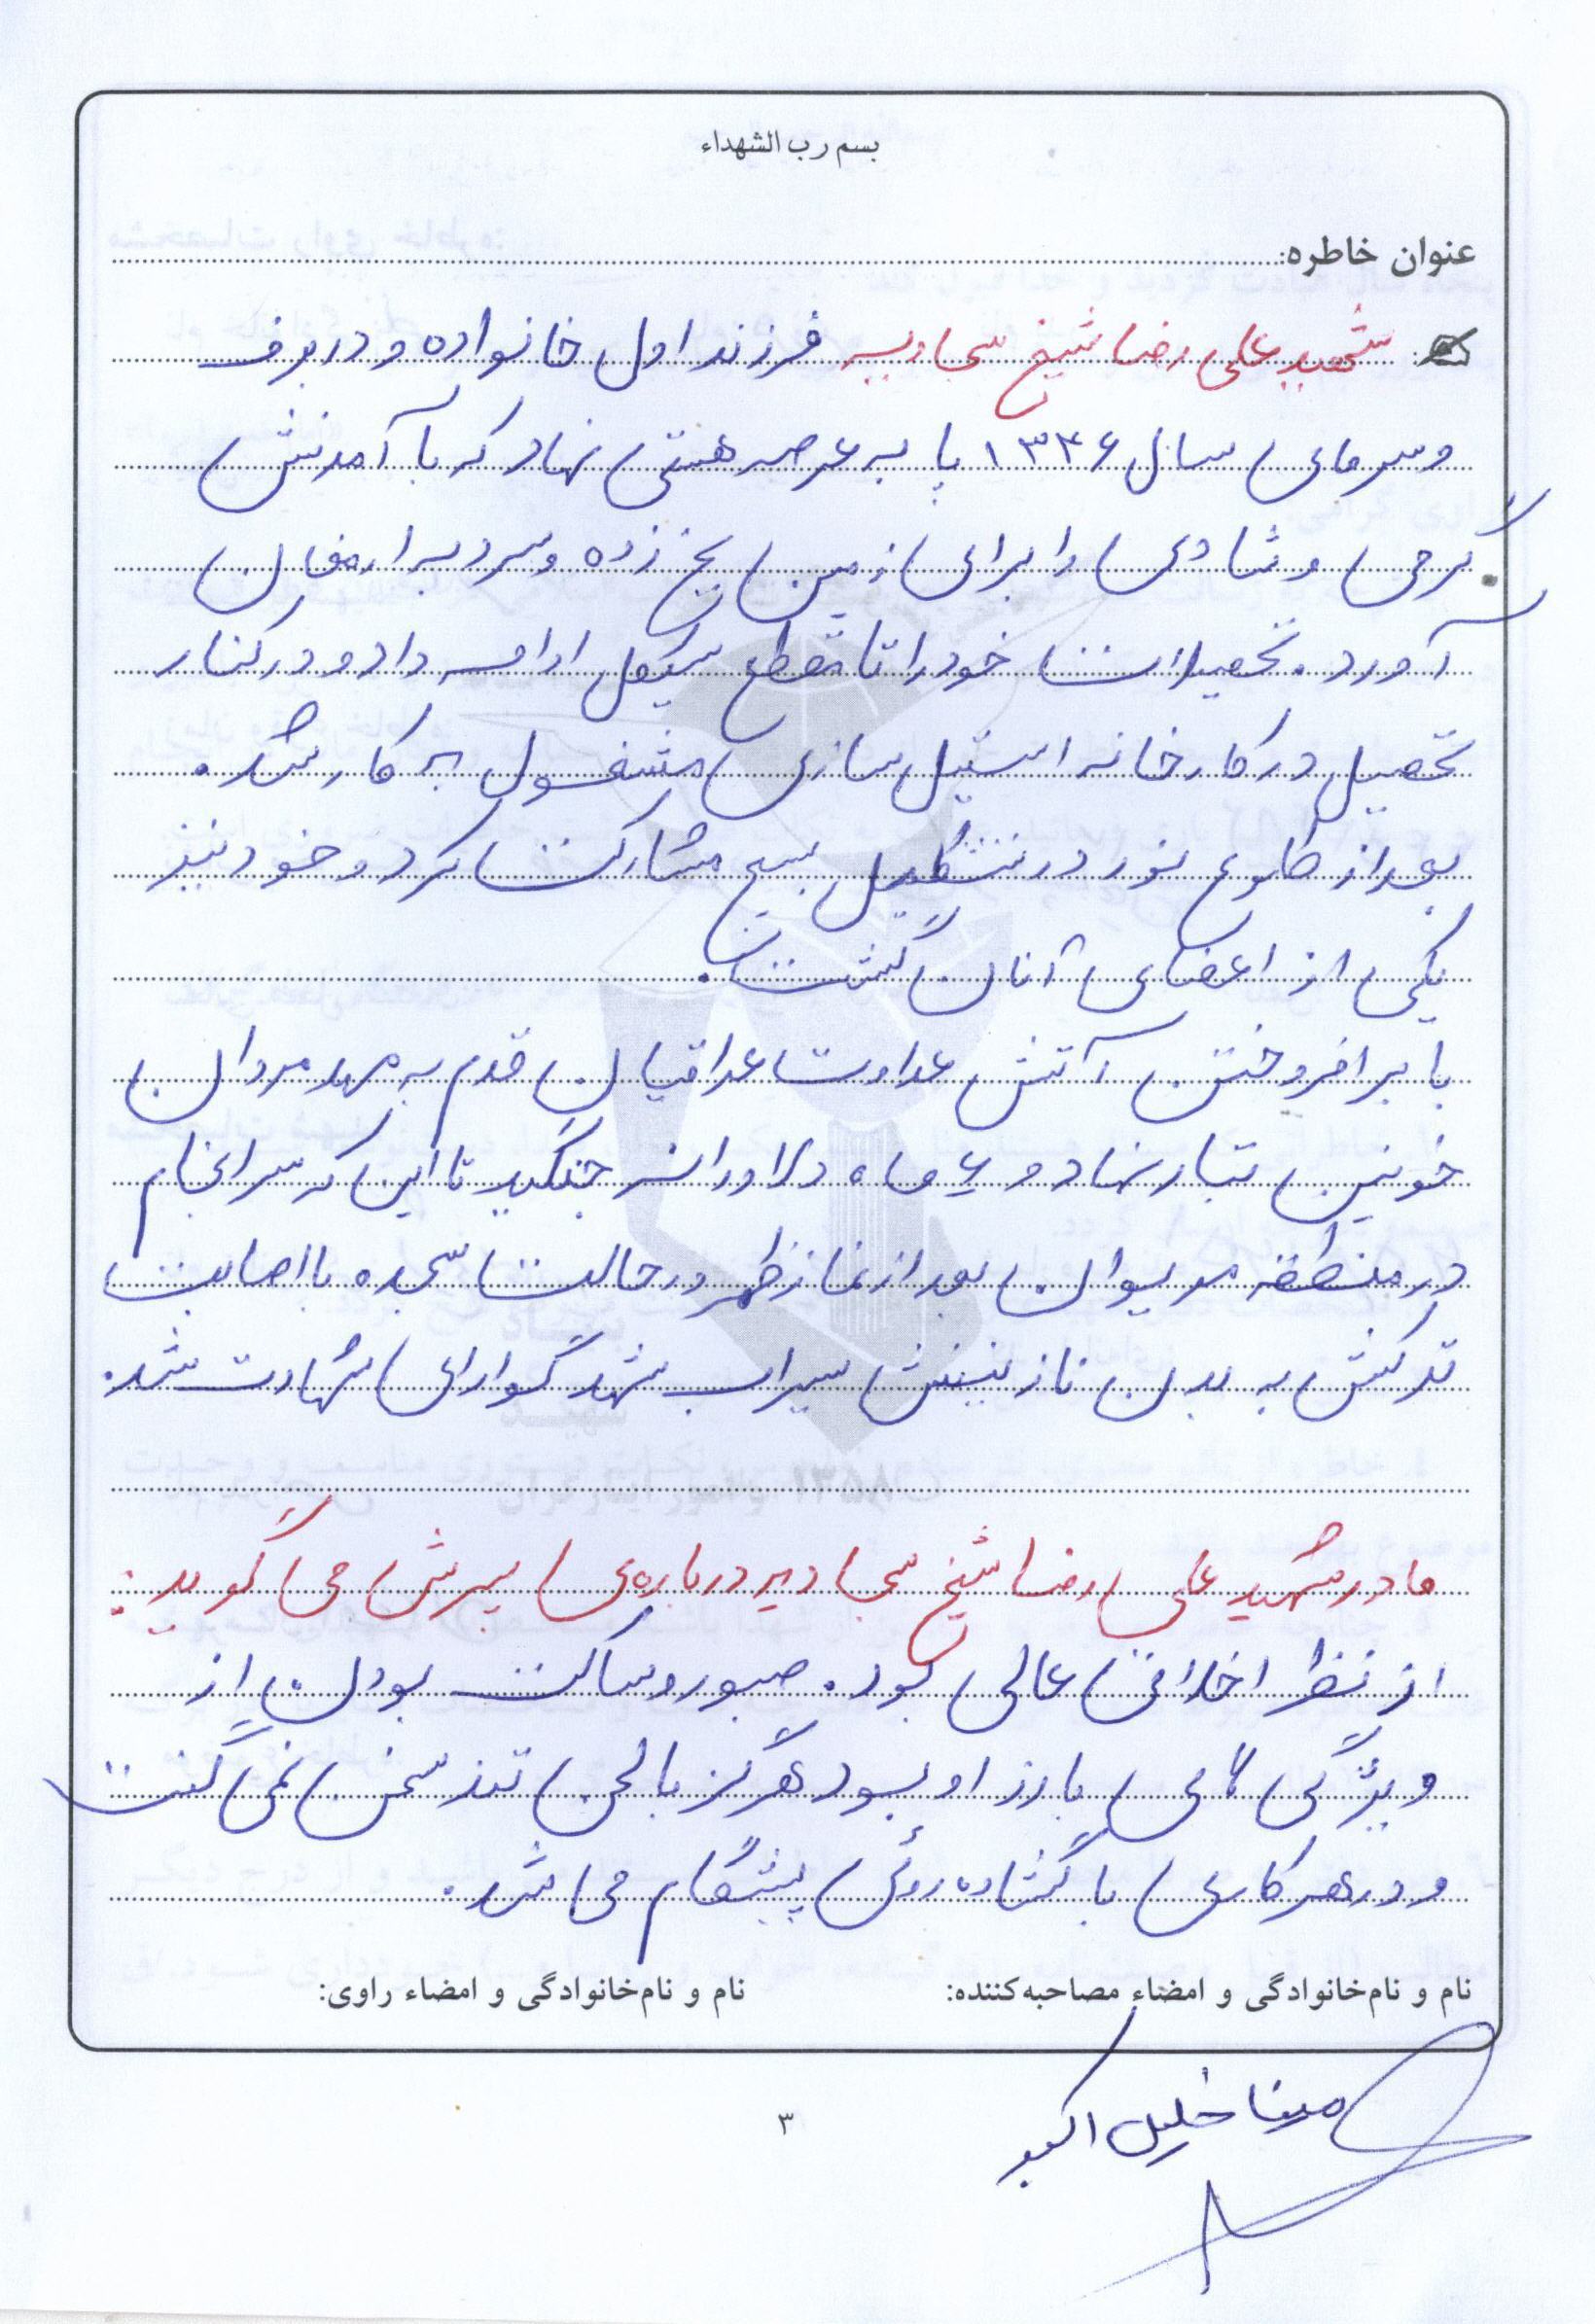 بسم رب الشهداء
عنوان خاطره:
شهید علی رضا شیخ سجادیه فرزند اول خانواده و در برف
و سرمای سال ۱۳۴۶ پا به عرصه هستی نهاد که با آمدنش
گرمی و شادی را برای زمین یخ زده و سرد به ارمغان
آورد. تحصیلات خود را تا مقطع سیکل ادامه داد و در کنار
تحصیل در کارخانه استیل سازی مشغول به کار شد.
بعد از طلوع نور در تشکیل بسیج مشارکت کرد و خود نیز
یکی از اعضای آنان گشت.
با برافروختن آتش عداوت عراقیان قدم به مهد مردان
خونین تبار نهاد و ۶ ماه دلاورانه جنگید تا این که سرانجام
در منطقه مریوان بعد از نماز ظهر در حالت سجده با اصابت
ترکش به بدن نازنینش سیراب شهد گوارای شهادت شد.
مادر شهید علی رضا شیخ سجادیه درباره‌ی پسرش می گوید:
از نظر اخلاقی عالی بود. صبور و ساکت بودن از
ویژگی های بارز او بود هرگز با لحن تند سخن نمی گفت
و در هر کاری با گشاده روئی پیشگام می شد.
نام و نام‌خانوادگی و امضاء مصاحبه‌کننده: نام و نام‌خانوادگی و امضاء راوی:
مینا خلیل اکبر
۳